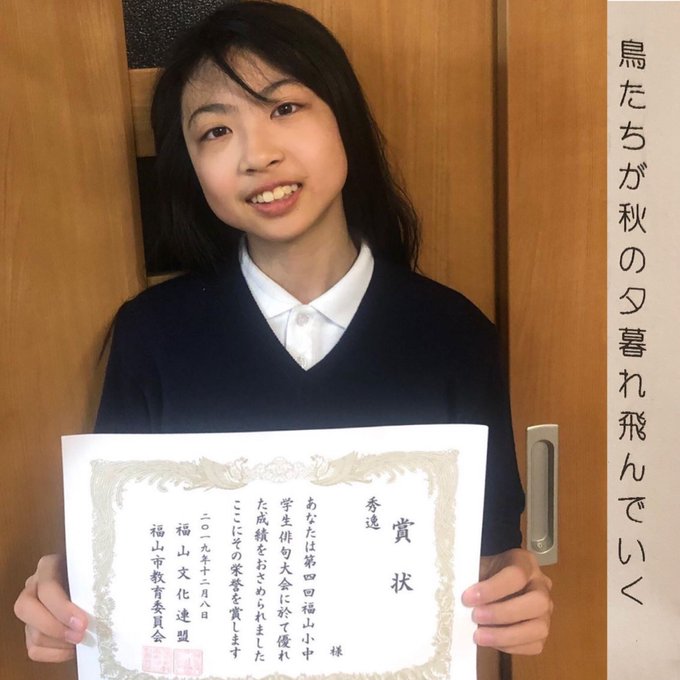 鳥たちが秋の夕暮れ飛んでいく
賞状
秀逸
様
あなたは第四回福山小中
学生俳句大会に於て優れ
た成績をおさめられました
ここにその栄誉を賞します
二〇一九年十二月八日
福山文化連盟
福山市教育委員会